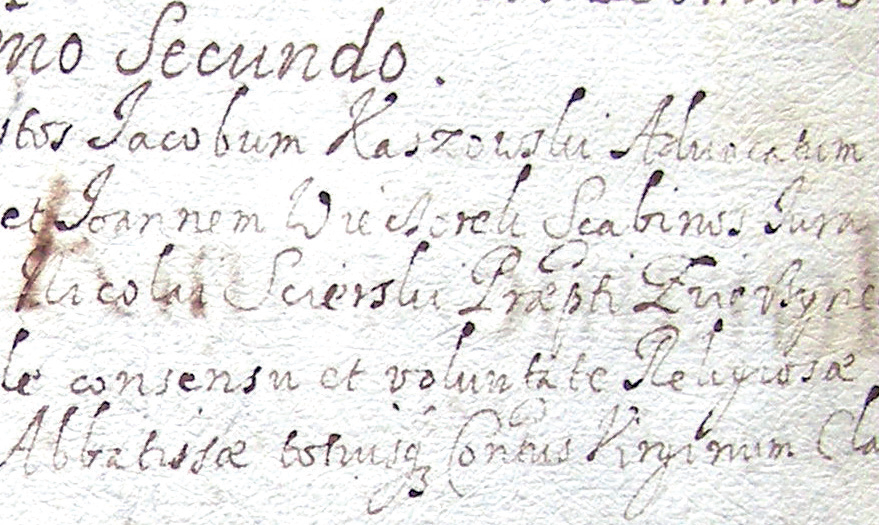 mo Secundo.
stos Jacobum Kaszowski Advocatum
et Joannem Wiectoreli Scabinos Jura
Nicolai Scierski Præpti
le consensu et voluntate Religiosæ
Abbatissæ totiusq3 Contus Virginum Cla